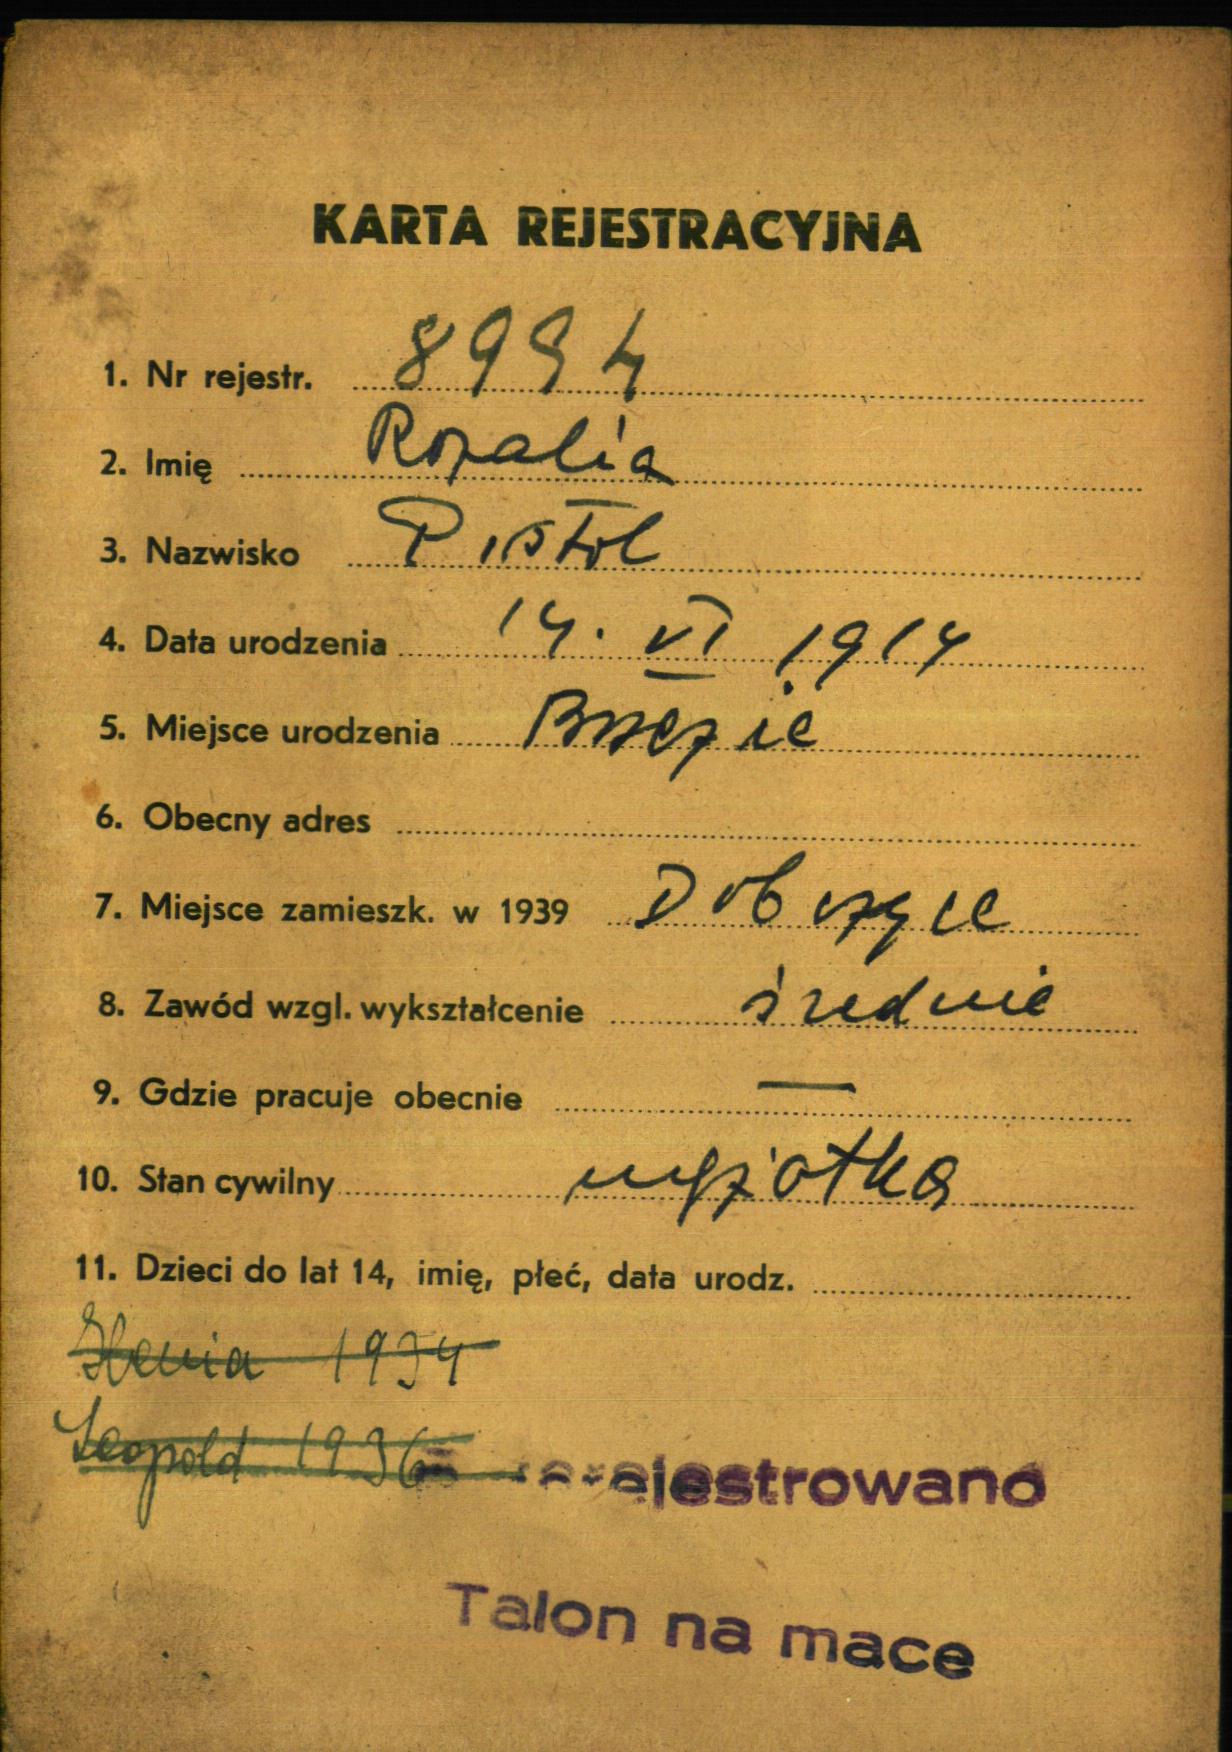 KARTA REJESTRACYJNA
1. Nr rejestr. 8994
2. Imię Rozalia
3. Nazwisko Pistol
4. Data urodzenia 14. VI 1914
5. Miejsce urodzenia
6. Obecny adres
7. Miejsce zamieszk. w 1939 Dobczyce
8. Zawód wzgl. wykształcenie średnie
9. Gdzie pracuje obecnie —
10. Stan cywilny mężatka
11. Dzieci do lat 14, imię, płeć, data urodz.
Henia 1934
Leopold 1936
Zarejestrowano
Talon na mace